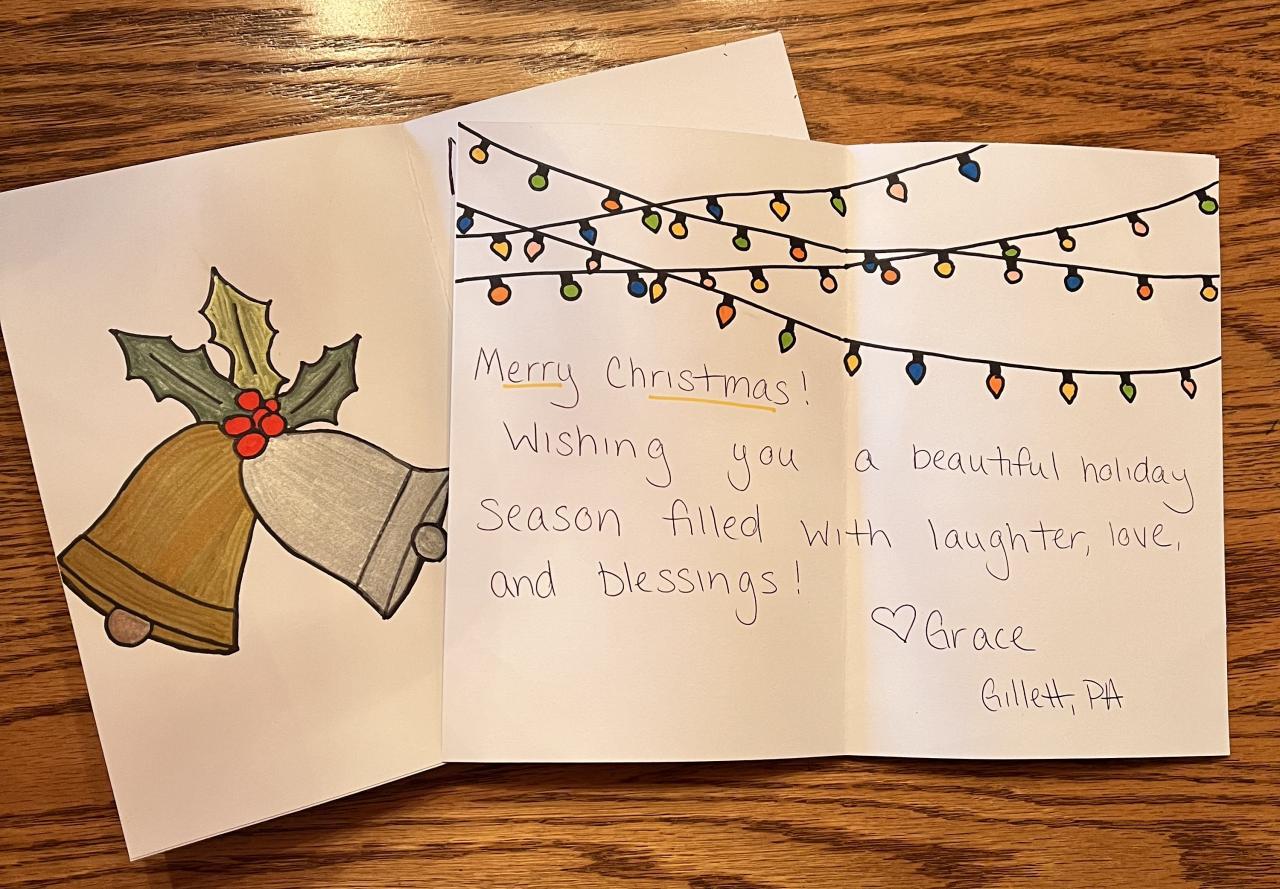 Merry Christmas!
Wishing you a beautiful holiday
season filled with laughter, love,
and blessings!
♡ Grace
Gillett, PA